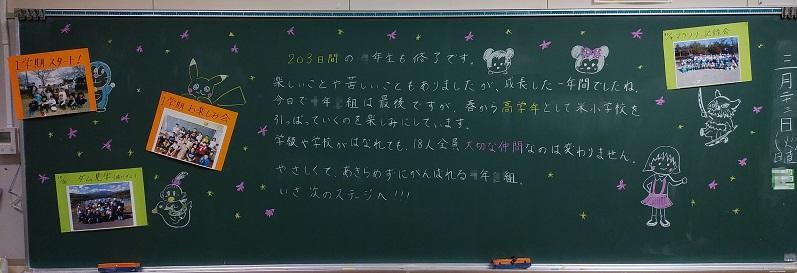 203日間の 年生も修了です。
楽しいことや苦しいこともありましたが、成長した一年間でしたね。
今日で 年 組は最後ですが、春から高学年として米小学校を
引っぱっていくのを楽しみにしています。
学級や学校がはなれても、18人全員大切な仲間なのは変わりません。
やさしくて、あきらめずにがんばれる 年 組.
いざ 次のステージへ!!!
1学期 スタート!
1学期 お楽しみ会
ダム見学
マラソン記録会
三月二十三日
日直